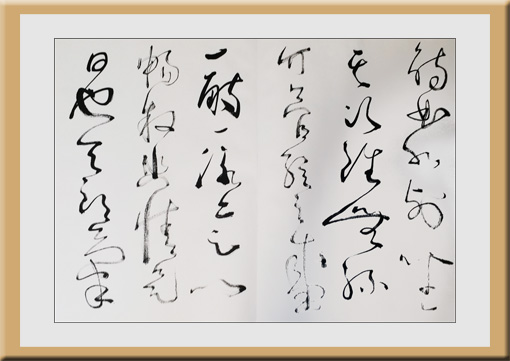 觴曲水列坐
其次雖無絲
竹管絃之盛
一觴一詠亦足以
暢敘幽情是
日也天朗氣